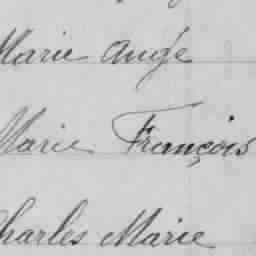 Marie Ange
Marie François
Charles Marie